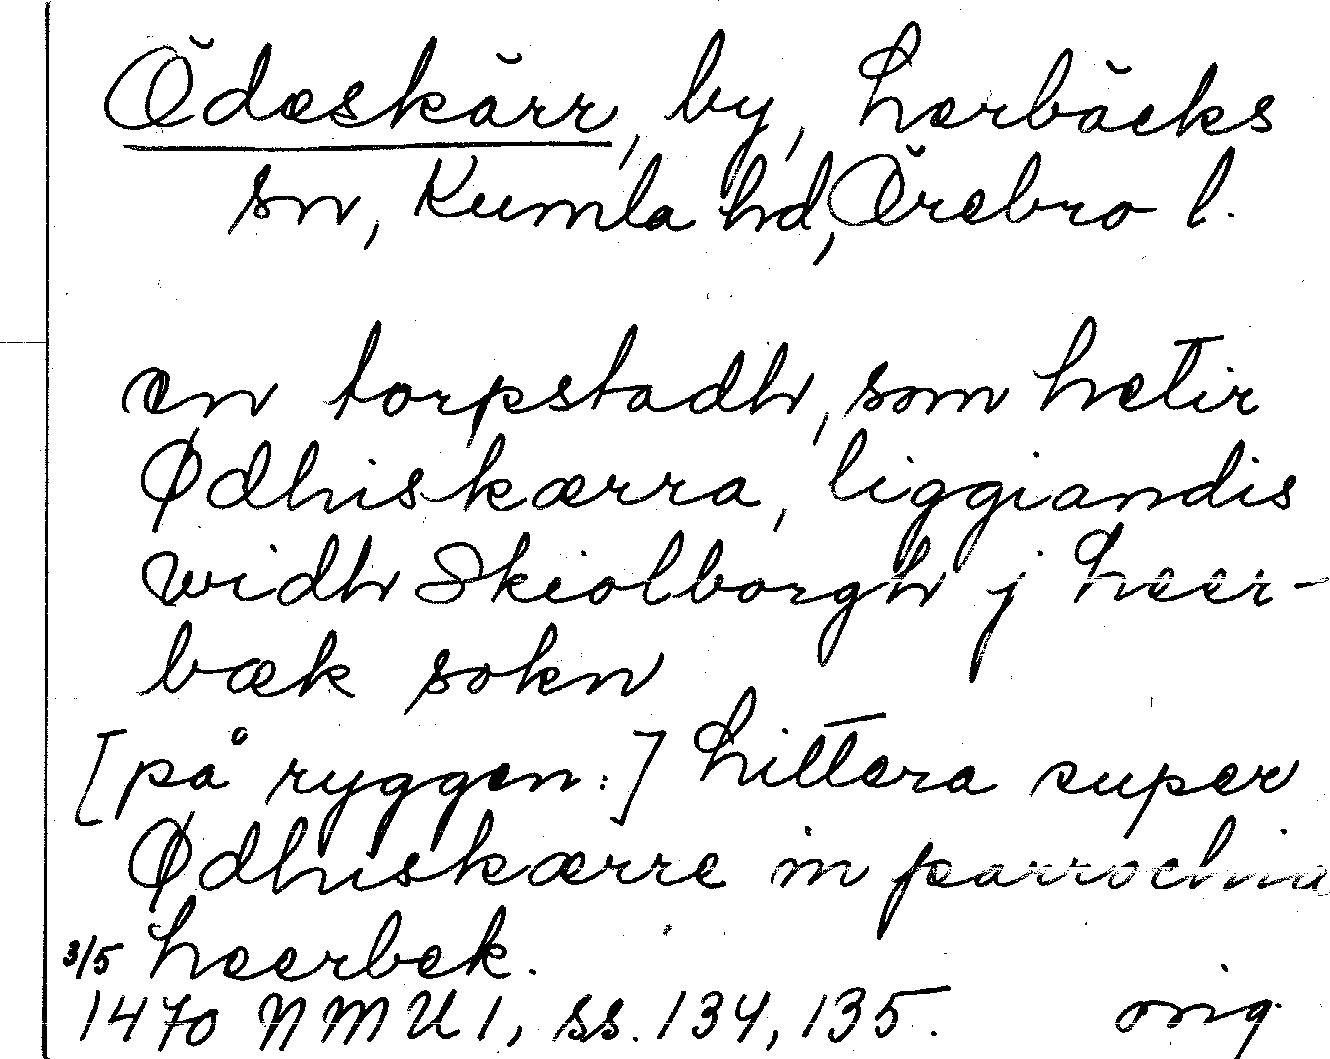 Ödeskärr, by, Lerbäcks
sn, Kumla hd, Örebro l.
en torpstadh, som hetir
Ødhiskærra, liggiandis
widh Skiolborgh j Leer-
bæk sokn
[på ryggen:] Littera super
Ødhiskærre in parrochia
Leerbek.
3/5
1470 NMU 1, ss. 134, 135. orig